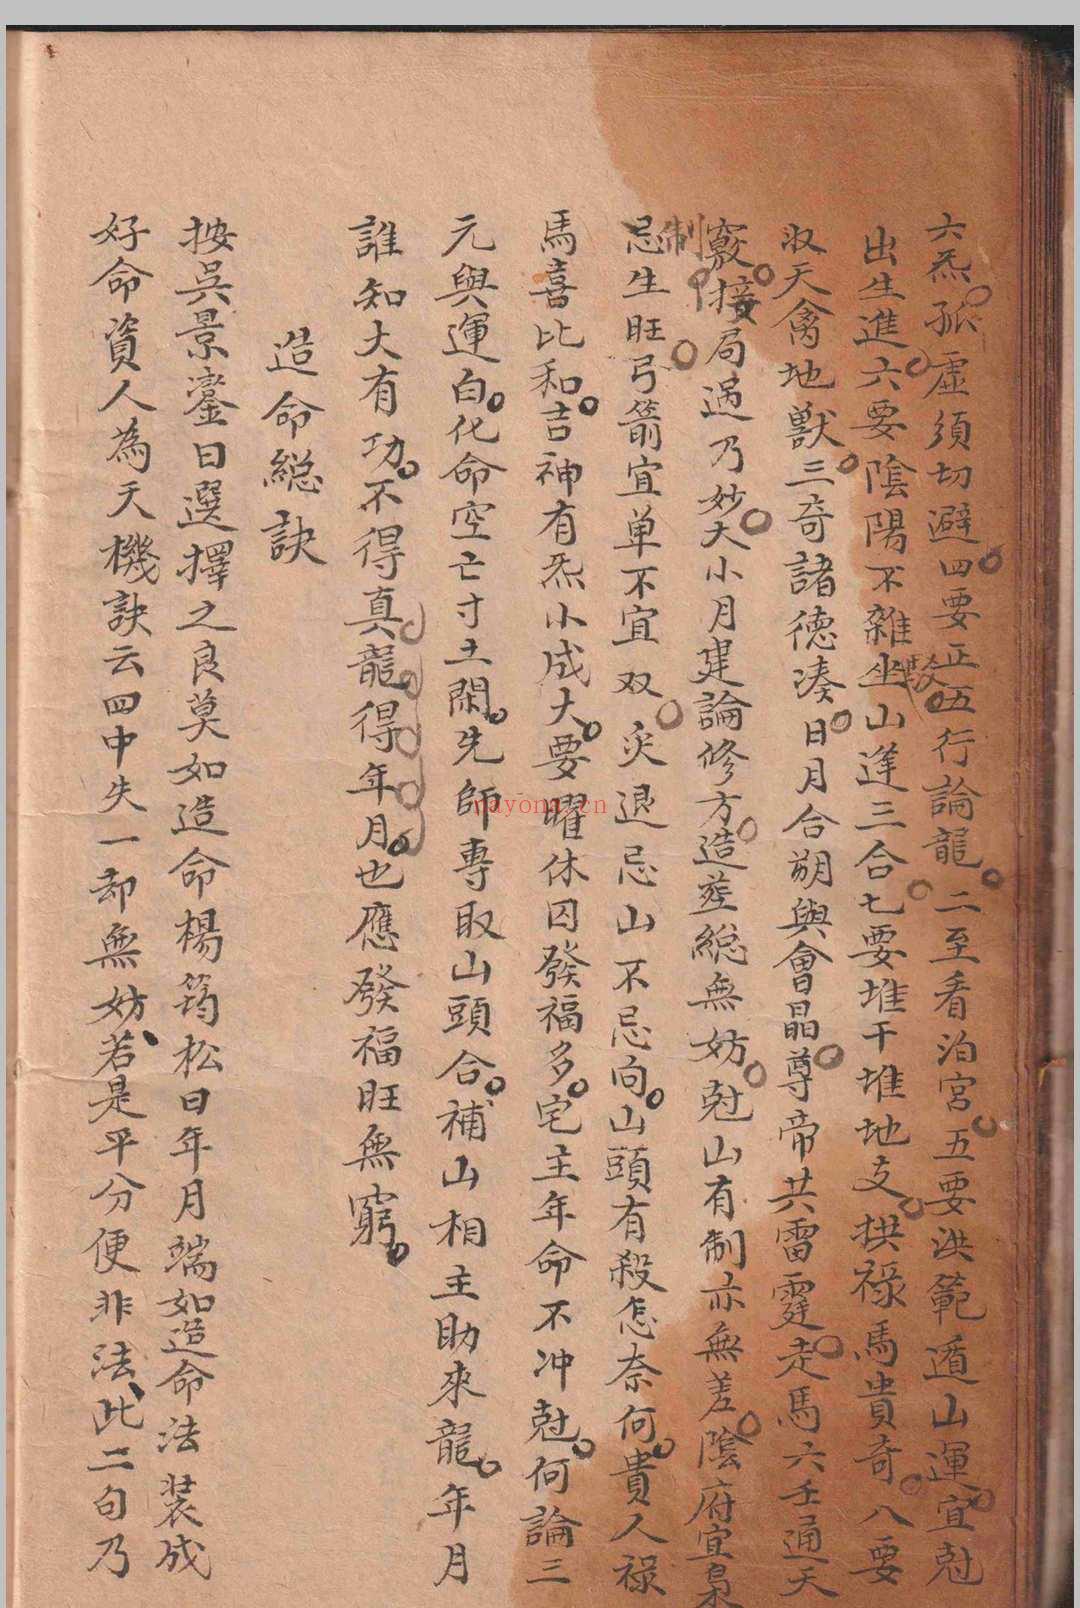 六炁孤虛須切避四要正五行論龍二至看泊宮五要洪範遁山運宜尅
出生進六要陰陽不雜坐山逢三合七要堆干堆地支拱祿馬貴奇八要
収天禽地獸三奇諸德湊日月合朔與會晶尊帝共雷霆走馬六壬通天
竅接局遇乃妙大小月建論修方造塟縂無妨尅山有制亦無差陰府宜
制
忌生旺弓箭宜单不宜双灾退忌山不忌向山頭有殺怎奈何貴人祿
馬喜比和吉神有炁小成大要曜休囚發福多宅主年命不冲尅何論三
元與運白化命空亡寸土閑先師專取山頭合補山相主助來龍年月
誰知大有功不得真龍得年月也應發福旺無窮
造命縂訣
按吳景鸞曰選擇之良莫如造命楊筠松曰年月端如造命法裝成
好命資人為天機訣云四中失一却無妨若是平分便非法此二句乃
nayona.cn